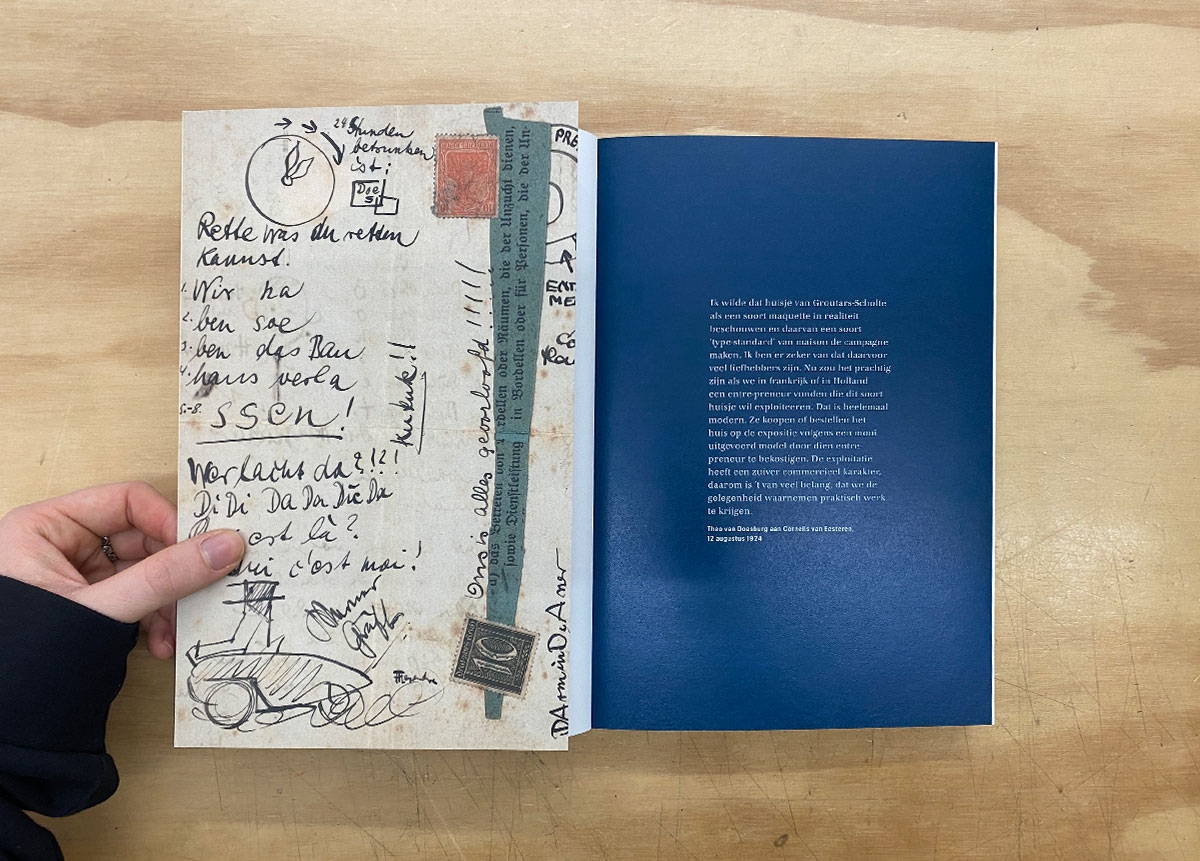 24 Stunden
betrunken
ist:
Does
Rette was du retten
kannst.
1. Wir ha
2. ben soe
3. ben das Bau
4. haus verla
5.-8. SSEN!
Kukuk!!
Wer lacht da?!?!
Di Di Da Da Die Da
est là?
c'est moi!
Ons is alles geoorloofd!!!!!
a) das Betreten von rdellen oder Räumen, die der Unzucht dienen,
sowie Dienstleistung in Bordellen oder für Personen, die der Un-
10
Ik wilde dat huisje van Groutars-Scholte
als een soort maquette in realiteit
beschouwen en daarvan een soort
'type-standard' van maison de campagne
maken. Ik ben er zeker van dat daarvoor
veel liefhebbers zijn. Nu zou het prachtig
zijn als we in frankrijk of in Holland
een entre-preneur vonden die dit soort
huisje wil exploiteeren. Dat is heelemaal
modern. Ze koopen of bestellen het
huis op de expositie volgens een mooi
uitgevoerd model door dien entre-
preneur te bekostigen. De exploitatie
heeft een zuiver commercieel karakter,
daarom is 't van veel belang, dat we de
gelegenheid waarnemen praktisch werk
te krijgen.
Theo van Doesburg aan Cornelis van Eesteren,
12 augustus 1924